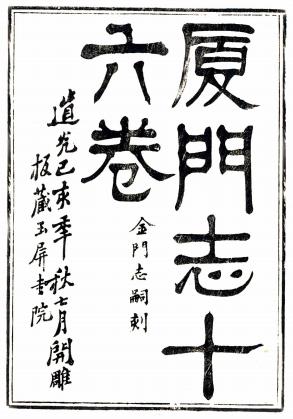 厦門志十
六卷
金門志嗣刻
道光己亥季秋七月開雕
板藏玉屏書院